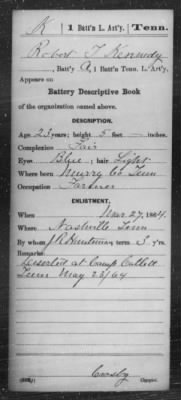 K | 1 Batt'n L. Art'y. | Tenn.
Robert T Kennedy
, Batt'y A, 1 Batt'n Tenn. L. Art'y.
Appears on
Battery Descriptive Book
of the organization named above.
DESCRIPTION.
Age 23 years; height 5 feet — inches.
Complexion Fair
Eyes Blue; hair Light
Where born Murry Co Tenn
Occupation Farmer
ENLISTMENT.
When Mar 27, 1864.
Where Nashville Tenn
By whom J R term 3 y'rs.
Remarks:
Deserted at Camp Catlett
Tenn May 23/64
Crosby
Copyist.